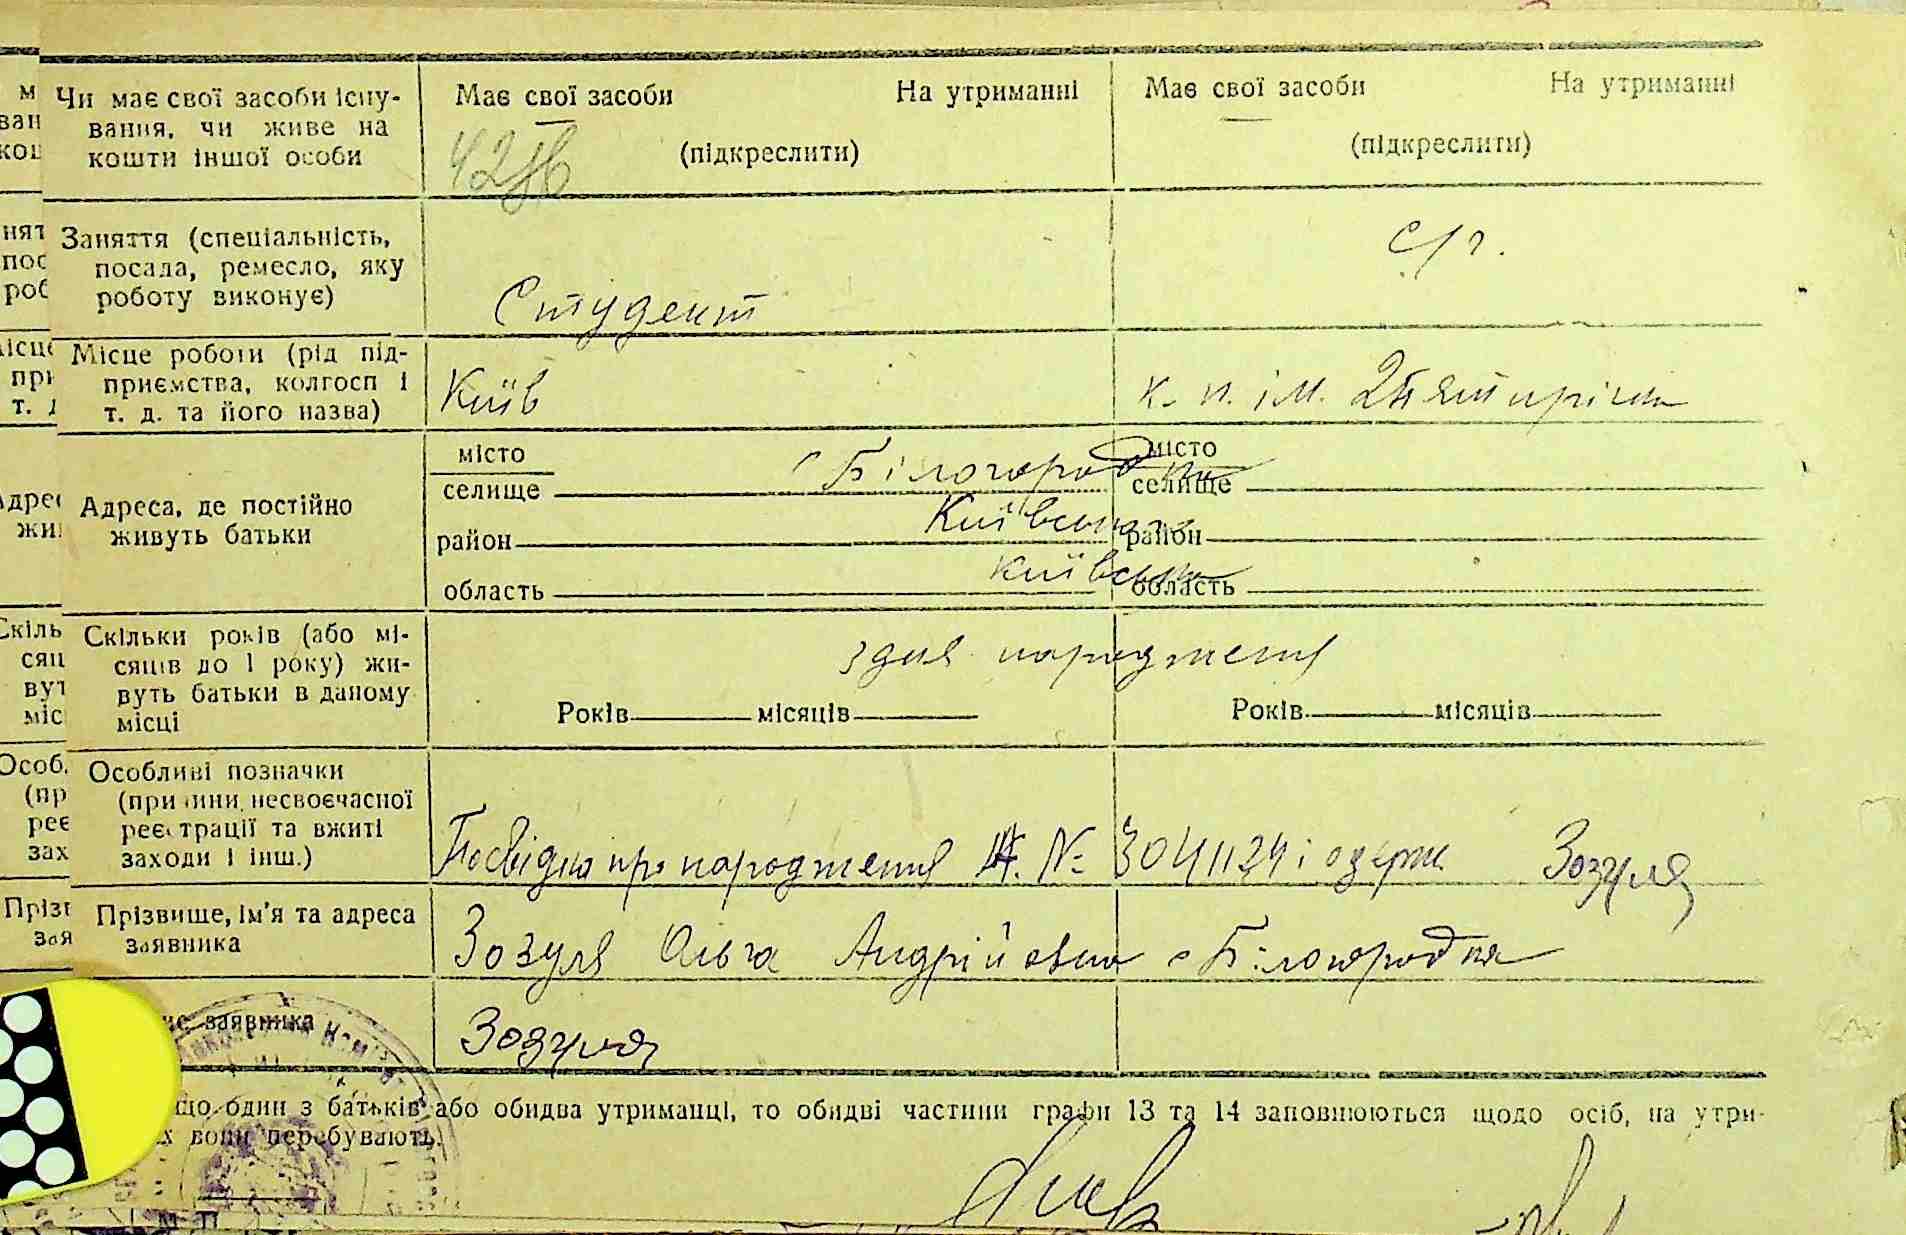 Чи має свої засоби існу-
вання, чи живе на
кошти іншої особи
Має свої засоби На утриманні
(підкреслити)
Має свої засоби На утриманні
(підкреслити)
Заняття (спеціальність,
посада, ремесло, яку
роботу виконує)
Студент
с/г.
Місце роботи (рід під-
приємства, колгосп і
т. д. та його назва)
Київ
к. п. ім. 2
Адреса, де постійно
живуть батьки
місто
селище
район
область
с Білогородка
Київська
Київська
місто
селище
район
область
Скільки років (або мі-
сяців до 1 року) жи-
вуть батьки в даному
місці
з дня народження
Років місяців
Років місяців
Особливі позначки
(причини несвоєчасної
реєстрації та вжиті
заходи і інш.)
про народження № 3041124 і одерж. Зозуля
Прізвище, ім'я та адреса
заявника
Зозуля Ольга Андріївна с Білогородка
заявника
Зозуля
що один з батьків або обидва утриманці, то обидві частини графи 13 та 14 заповнюються щодо осіб, на утри-
х вони перебувають.
М. П.